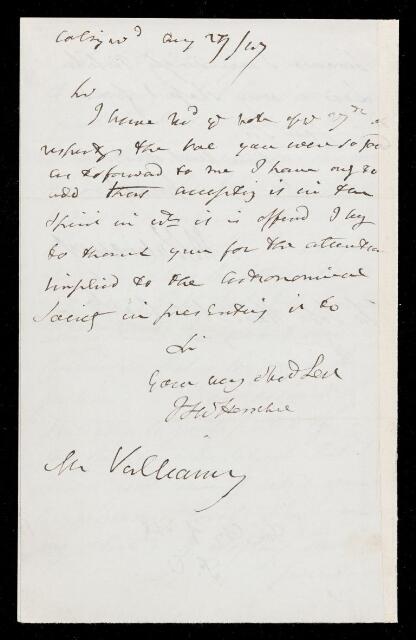 Collingwd Aug 29/47
Sir
I have recd yr note of yr 27th
respectg the box you were so good
as to forward to me I have only to
add that accepting it in the
spirit in wch it is offered I beg
to thank you for the attention
implied to the Astronomical
Society in presenting it to
Sir
Your very obed Sert
J F W Herschel
Mr Vulliamy